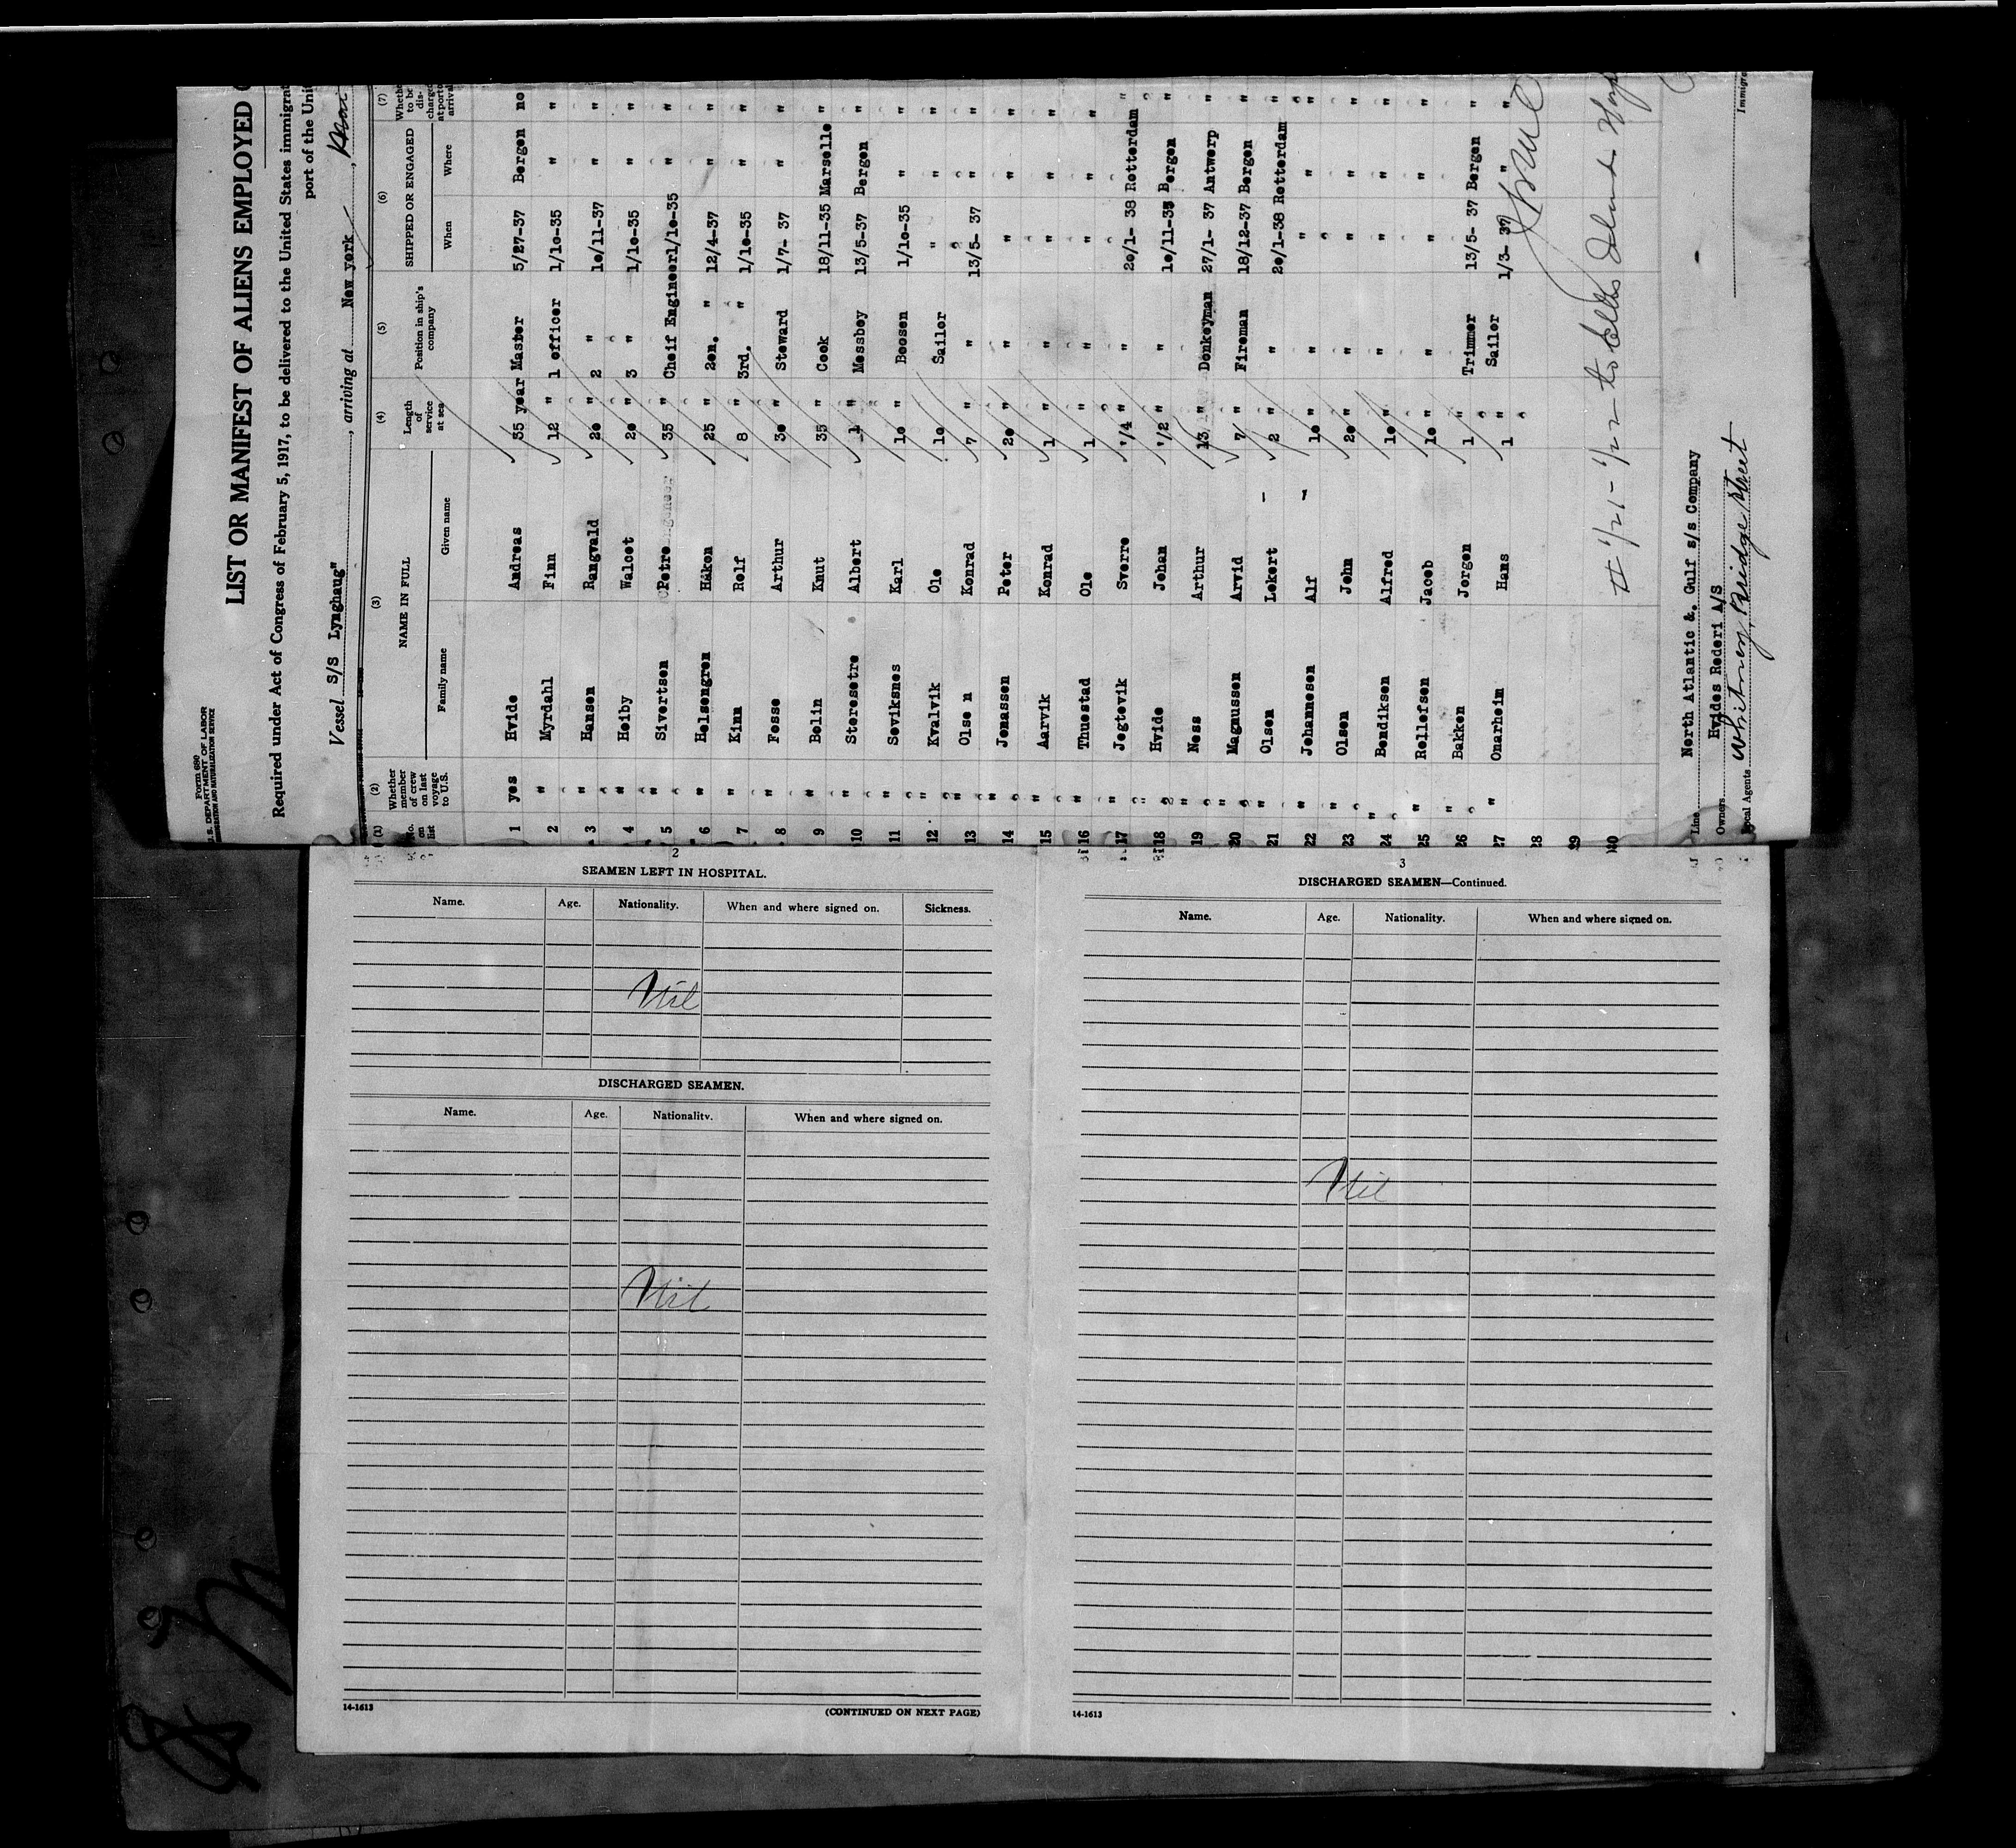 Form 680
U. S. DEPARTMENT OF LABOR
IMMIGRATION AND NATURALIZATION SERVICE
LIST OR MANIFEST OF ALIENS EMPLOYED
Required under Act of Congress of February 5, 1917, to be delivered to the United States immigrat
port of the Uni
Vessel S/S Lynghaug" , arriving at New york ,
(1) (2) (3) (4) (5) (6) (7)
No. on list Whether member of crew on last voyage to U.S. NAME IN FULL Length of service at sea Position in ship's company SHIPPED OR ENGAGED Wheth to be dis- charged at port o arrival
Family name Given name When Where
1 yes Hvide Andreas 35 year Master 5/27-37 Bergen no
2 " Myrdahl Finn 12 " 1 officer 1/10-35 " "
3 " Hansen Rangvald 20 " 2 " 10/11-37 " "
4 " Heiby Walcot 20 " 3 " 1/10-35 " "
5 " Sivertsen Petre 35 " Cheif Engineer 1/10-35 " "
6 " Helsengren Håkon 25 " 2en. " 12/4-37 " "
7 " Kinn Rolf 8 " 3rd. " 1/10-35 " "
8 " Fosse Arthur 30 " Steward 1/7- 37 " "
9 " Bolin Knut 35 " Cook 18/11-35 Marselle "
10 " Storesetre Albert 1 " Messboy 13/5-37 Bergen "
11 " Seviksnes Karl 10 " Boosen 1/10-35 " "
12 " Kvalvik Ole 10 Sailor " " "
13 " Olse n Konrad 7 " " 13/5- 37 " "
14 " Jonassen Peter 20 " " " " "
15 " Aarvik Konrad 1 " " " " "
16 " Thuestad Ole 1 " " " " "
17 " Jogtevik Sverre 1/4 " " 20/1- 38 Rotterdam "
18 " Hvide Johan 1/2 " " 10/11-35 Bergen "
19 " Ness Arthur 13 " Donkeyman 27/1- 37 Antwerp "
20 " Magnussen Arvid 7 " Fireman 18/12-37 Bergen "
21 " Olsen Lokert - 2 " " 20/1-38 Rotterdam "
22 " Johannesen Alf - 10 " " " " "
23 " Olsen John 20 " " " " "
24 " Bendiksen Alfred 10 " " " " "
25 " Rollefsen Jacob 10 " " " "
26 " Bakken Jorgen 1 " Trimmer 13/5- 37 Bergen "
27 " Onarheim Hans 1 " Sailor 1/3- 37 " "
28
29
30
# 1/21 - 1/22 - to Ellis Island
Line North Atlantic &. Gulf s/s Company
Owners Hvides Rederi A/S
Local Agents Whitney, Bridge Street
Immigra
2
SEAMEN LEFT IN HOSPITAL.
Name. Age. Nationality. When and where signed on. Sickness.
Nil
DISCHARGED SEAMEN.
Name. Age. Nationality. When and where signed on.
Nil
14-1613
(CONTINUED ON NEXT PAGE)
3
DISCHARGED SEAMEN—Continued.
Name. Age. Nationality. When and where signed on.
Nil
14-1613